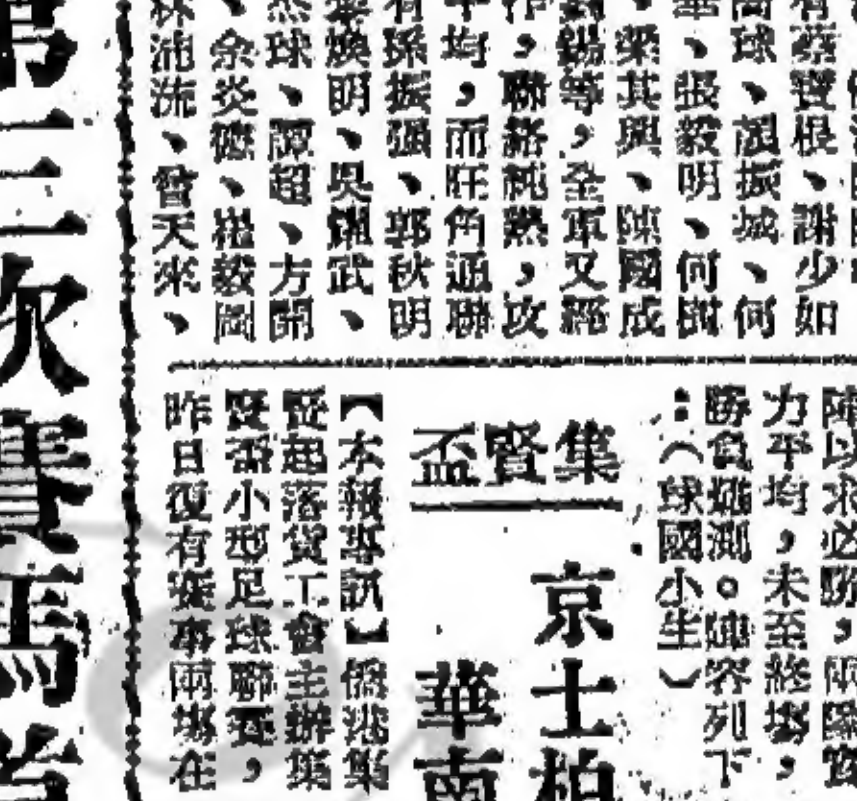 有蔡寶根、謝少如
高球、溫振城、何
華、張毅明、何樹
榮其興、陳國成
錫等，全軍又經
作，聯絡純熟，攻
平均，而旺角通聯
有孫振強、郭秋明
葉煥明、吳耀武、
杰球、譚超、方開
、余炎德、崔毅岡
林浦流、曾天來、
陣以求必勝，兩隊實
力平均，未至終場，
勝負難測。陣容列下
：（球國小生）
集賢盃
京士柏
華南
【本報專訊】僑港集
賢起落貨工會主辦集
賢盃小型足球聯賽，
昨日復有賽事兩場在
第三次賽馬當